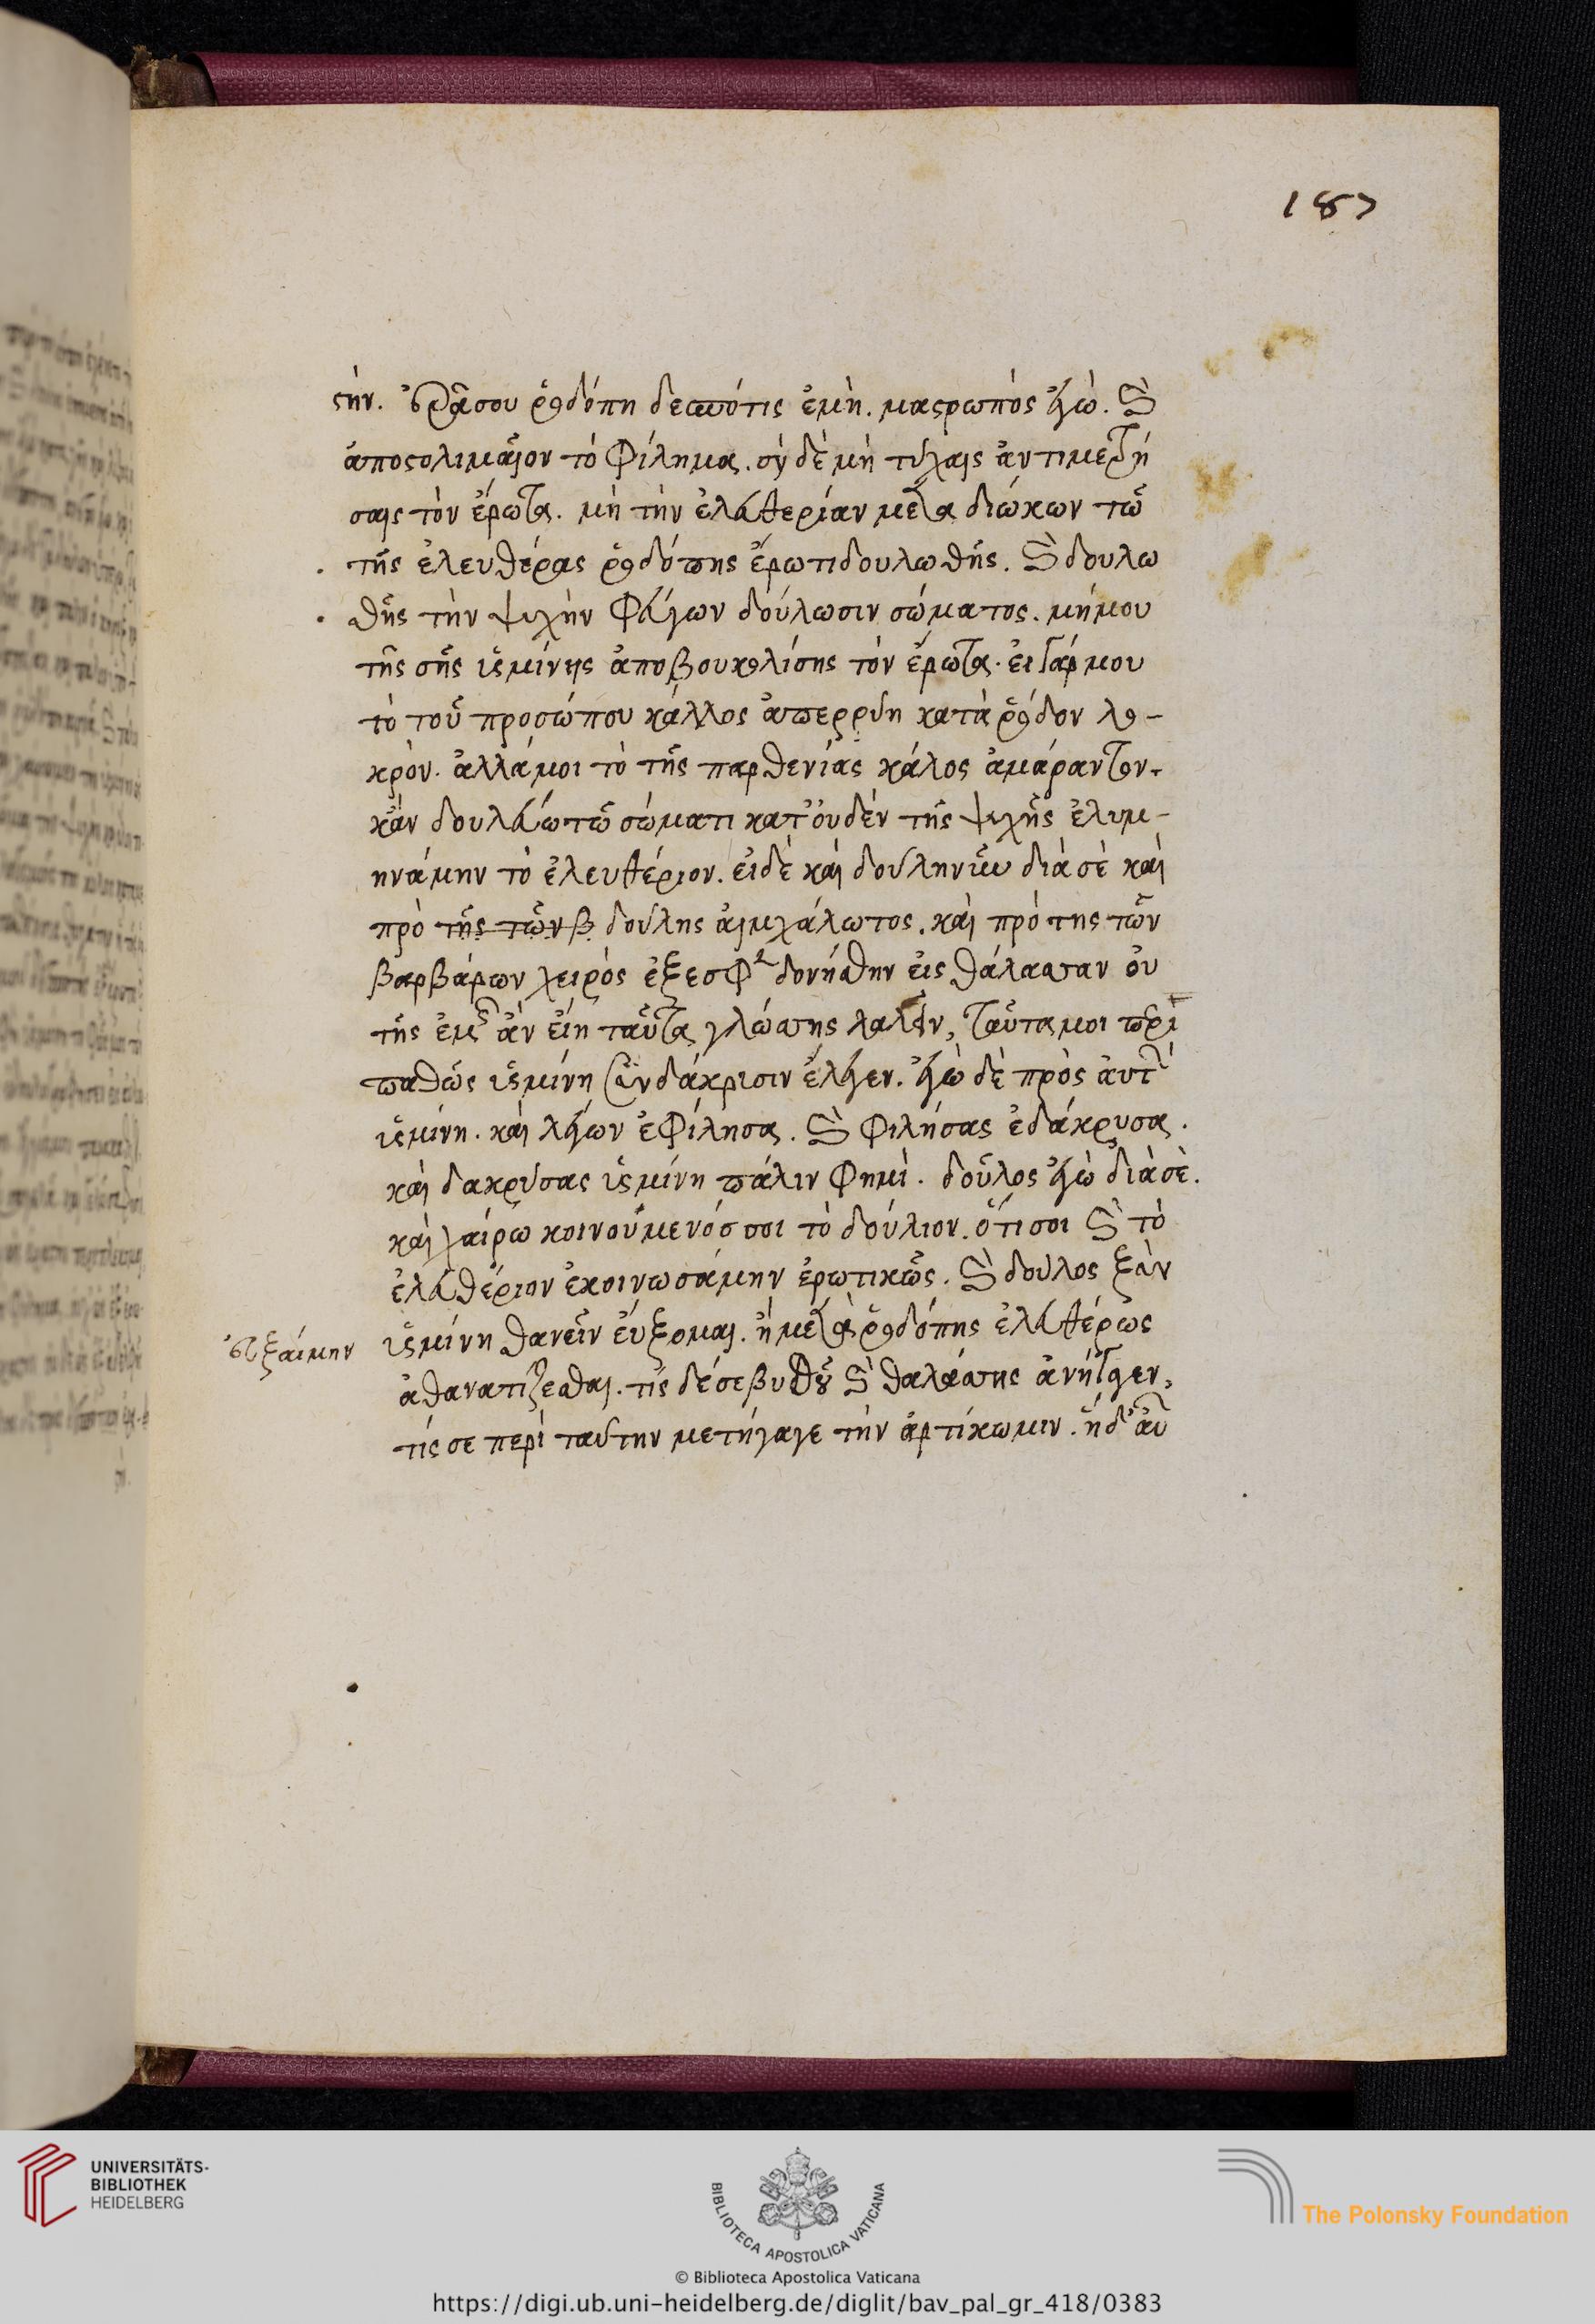 187
στήν. ἐρᾶ σου ῥοδόπη δεσπότις ἐμή. μαστρωπὸς ἐγώ. καὶ
ἀποστολιμαῖον τὸ φίλημα. σὺ δὲ μὴ τύχαις ἀντιμετρή
σαις τὸν ἔρωτα. μὴ τὴν ἐλευθερίαν μετα διώκων τῶ
τῆς ἐλευθέρας ῥοδόπης ἔρωτι δουλωθῆς. καὶ δουλω
θῆς τὴν ψυχὴν φεύγων δούλωσιν σώματος. μή μου
τῆς σῆς ὑσμίνης ἀποβουκολίσης τὸν ἔρωτα. εἰ γάρ μου
τὸ τοῦ προσώπου κάλλος ἀπερρύη κατὰ ῥόδον λο-
κρόν. ἀλλά μοι τὸ τῆς παρθενίας κάλος ἀμάραντον.
κἂν δουλεύω τῶ σώματι κατ' οὐδὲν τῆς ψυχῆς ἐλυμ-
ηνάμην τὸ ἐλευθέριον. εἰ δὲ καὶ δούλην ἦν διὰ σὲ καὶ
πρὸ τῆς τῶν β δούλης αἰχμάλωτος. καὶ πρὸ της τῶν
βαρβάρων χειρὸς ἐξεσφενδονήσθην εἰς θάλασσαν οὐ
τῆς ἐμῆς ἂν εἴη ταῦτα γλώσσης λαλεῖν, ταῦτά μοι περι
παθῶς ὑσμίνη σὺν δάκρισιν ἔλεγεν. ἐγὼ δὲ πρὸς αὐτὴν
ὑσμίνη. καὶ λέγων ἐφίλησα. καὶ φιλήσας ἐδάκρυσα.
καὶ δακρύσας ὑσμίνη πάλιν φημί. δοῦλος ἐγὼ διὰ σὲ.
καὶ χαίρω κοινούμενός σοι τὸ δούλιον. ὅτι σοι καὶ τὸ
ἐλευθέριον ἐκοινωσάμην ἐρωτικῶς. καὶ δοῦλος ξὺν
ὑσμίνη θανεῖν εὔξομαι. ἢ μετὰ ῥοδόπης ἐλευθέρως
εὐξαίμην
ἀθανατίζεσθαι. τίς δέ σε βυθοῦ καὶ θαλάσσης ἀνήγαγεν,
τίς σε περὶ ταύτην μετήγαγε τὴν ἀρτίκωμιν. ἡ δ' αὖ
UNIVERSITÄTS-
BIBLIOTHEK
HEIDELBERG
BIBLIOTECA APOSTOLICA VATICANA
The Polonsky Foundation
© Biblioteca Apostolica Vaticana
https://digi.ub.uni-heidelberg.de/diglit/bav_pal_gr_418/0383